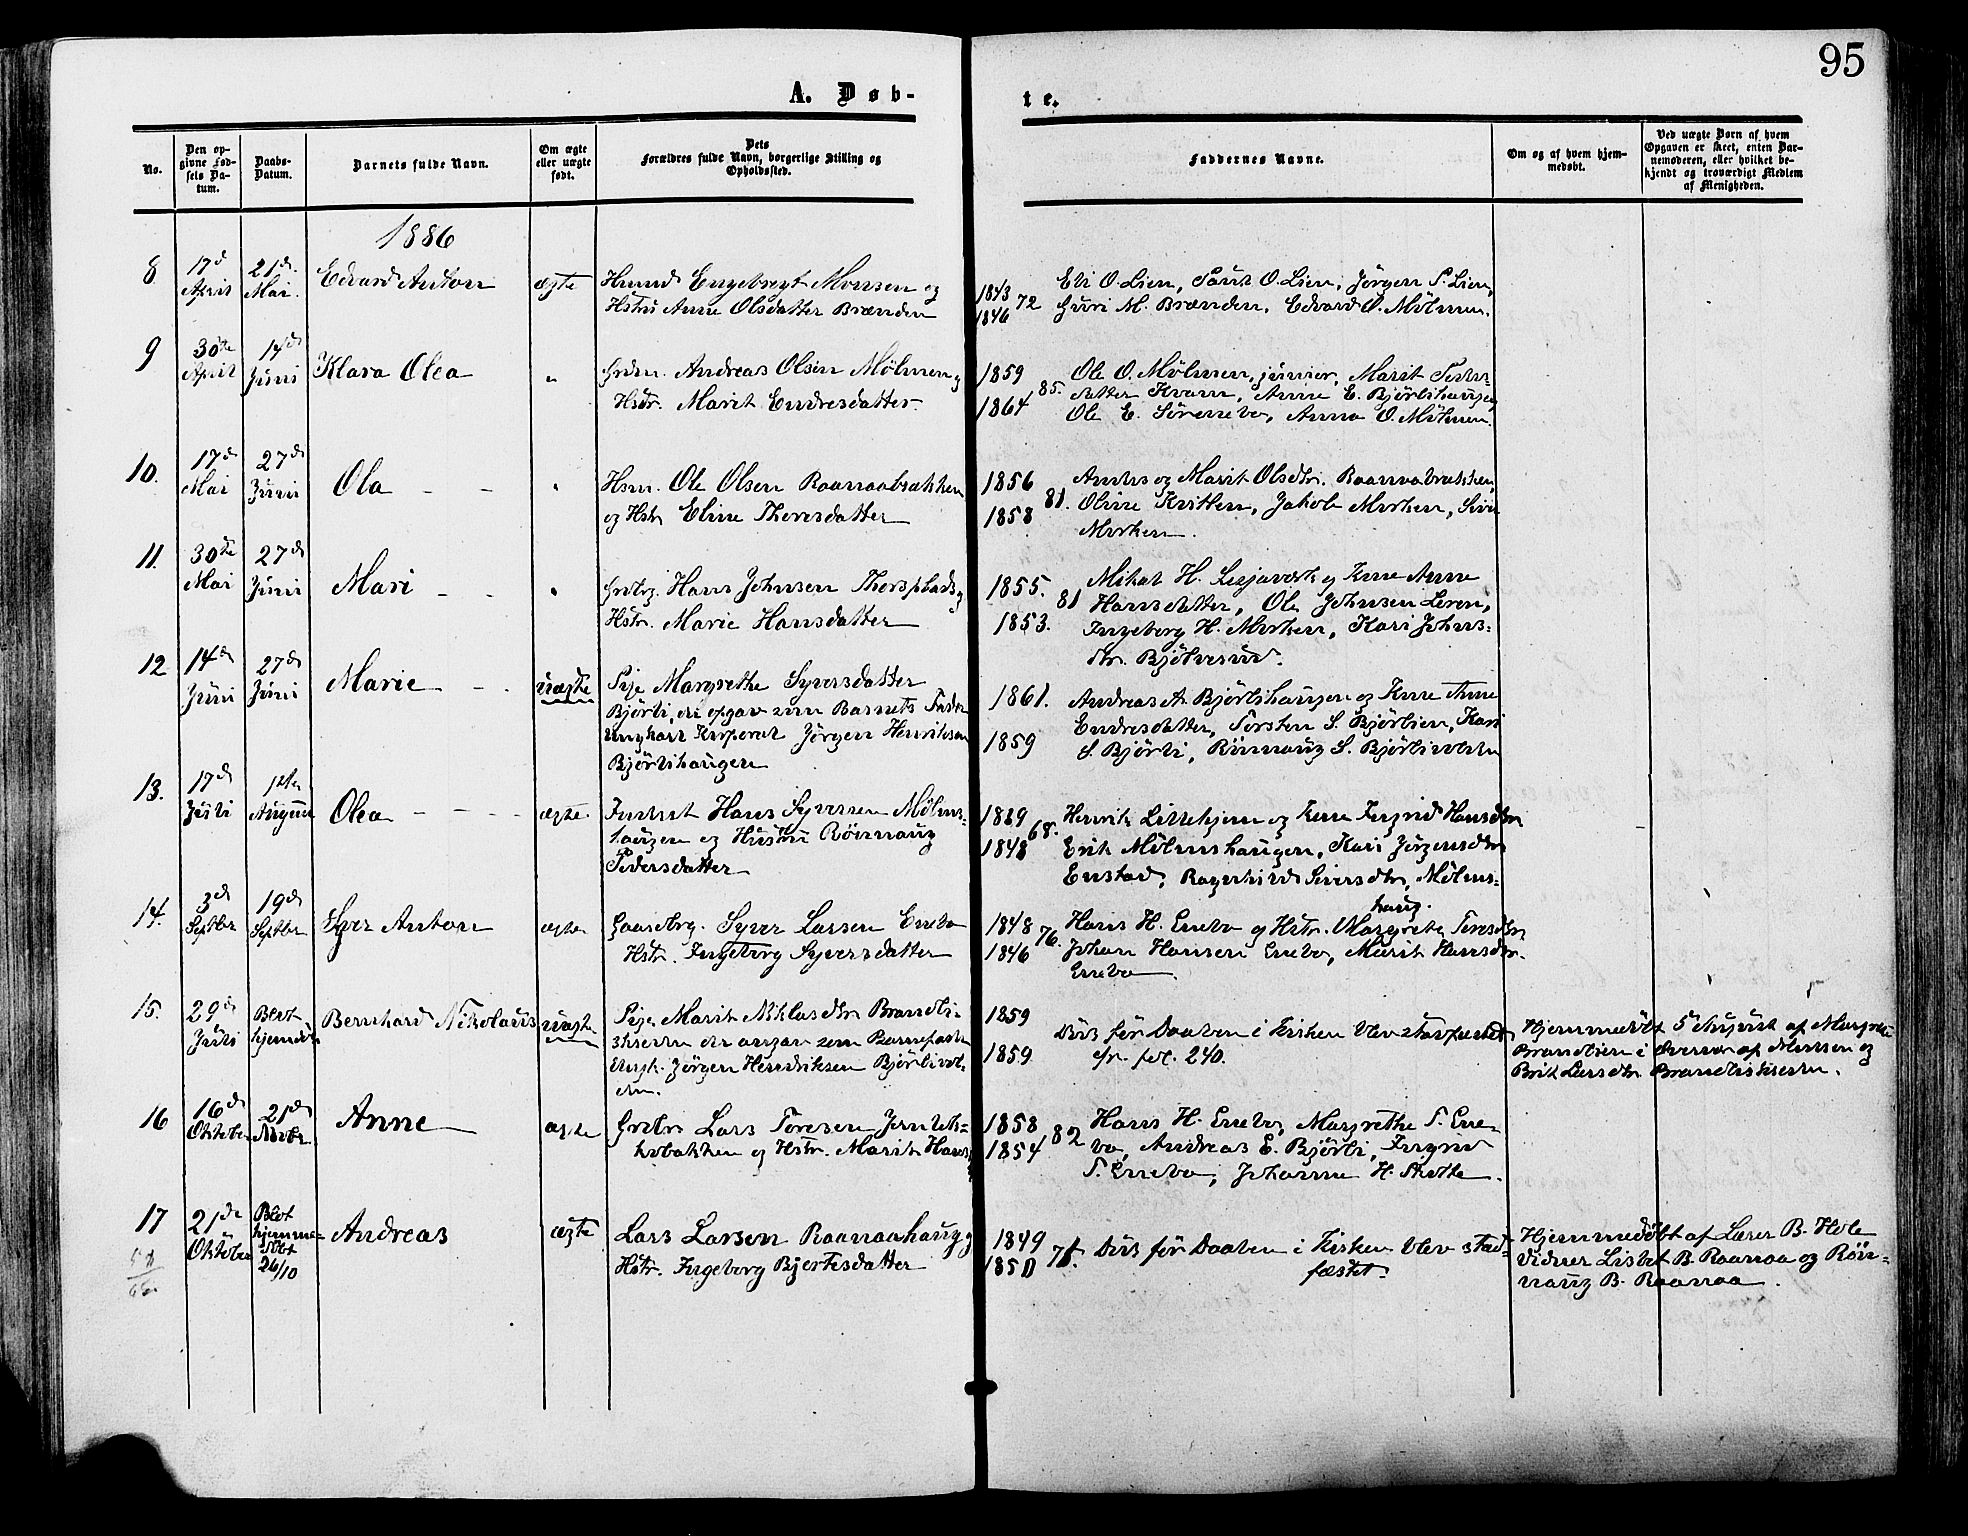 95
A. Døb-
te.
No.
Den op-
givne Fød-
sels Da-
tum.
Daabs-
Datum.
Barnets fulde Navn.
Om ægte
eller uægte
født.
Dets
Forældres fulde Navn, borgerlige Stilling og
Opholdssted.
Faddernes Navne.
Om og af hvem hjem-
medøbt.
Ved uægte Børn af hvem
Opgaven er skeet, enten Bar-
nemoderen, eller hvilket be-
kjendt og troværdigt Medlem
af Menigheden.
1886
8
17d
April
21de
Mai.
Edvard Anton
ægte
Engebregt Monsen og
Hstru Anne Olsdatter Brænden
1843
1846
72
Eli O. Lien, O. Lien, Jørgen S. Lien,
Guri M. Brænden, Edvard O. Mølmen.
9
30te
April
14d
Juni
Klara Olea
"
Grdm. Andreas Olsen Mølmen og
Hstr. Marit Endresdatter.
1859
1864
85.
Ole O. Mølmen, junior, Marit
datter Kvam, Anne E. Bjørlihaugen,
Ole E. Sørenebo, Anna O. Mølmen.
10.
17d
Mai
27d
Juni
Ola - -
"
Hsm. Ole Olsen Raanaabakken
og Hstr Eline Thoresdatter
1856
1858
81.
og Marit Olsdtr. Raanaabakken,
Oline Jakob Morken, Siri
Morken.
11.
30te
Mai
27d
Juni
Mari - -
"
Hans Johnsen Thorsplads og
Hstr. Marie Hansdatter
1855.
1853.
81
H. Lesjaverk og Kone Anne
Hansdatter, Ole Johnsen
Ingeborg H. Morken, Kari Johns-
dtr. Bjølverud.
12
14d
Juni
27d
Juni
Marie - -
uægte
Pige Margrethe Syversdatter
Bjørli, der opgav som Barnets Fader
Ungkarl Korporal Jørgen Henriksen
Bjørlihaugen
1861.
1859
Andreas A. Bjørlihaugen og Kone Anne
Endresdatter, Torsten S. Bjørlien, Kari
S. Bjørli, Rønnaug S. Bjørlivolden
13.
17d
Juli
1ste
August
Olea - -
ægte
Inderst Hans Syversen Mølms-
haugen og Hustru Rønnaug
Pedersdatter
1839
1848
68.
Henrik Lillehjem og Kone Ingrid Hansdtr
Erik Mølmshaugen, Kari Jørgensdtr
Enstad, Ragnhild Siversdtr, Mølms-
haug.
14.
3d
Septbr
19d
Septbr
Syver Anton
ægte
Gaardbrg. Syver Larsen Enebo
Hstr. Ingeborg Syversdatter
1848
1846
76.
Hans H. Enebo og Hstr. Margrete Toresdtr,
Johan Hansen Enebo, Marit Hansdtr.
Enebo.
15.
29d
Juli
Blot
hjemdøbt
Bernhard Nikolaus
uægte
Pige Marit Niklasdtr Brandli-
skreden der angav som Barnefader
Ungk. Jørgen Hendriksen Bjørlivol-
den.
1859
1859
Døds før Daaben i Kirken blev stadfæstet
cfr. fol. 240.
Hjemmedøbt 5 August af Margrete
Brandlien i Overvær af Moren og
Brit Larsdtr Brandliskreden.
16
16d
Oktober
21d
Novbr.
Anne
ægte
Lars Toresen
og Hstr. Marit Hansd
1858
1854
82
Hans H. Enebo, Margrethe T. Ene-
bo, Andreas E. Bjørli, Ingrid
S. Enebo, Johanne H. Skotte.
17
21de
Oktober
Blot
hjemme-
døbt
26/10
Andreas
ægte
Lars Larsen Raanaahaug og
Hstr. Ingeborg Bjertesdatter
1849
1850
71.
Døds før Daaben i Kirken blev stad-
fæstet.
Hjemmedøbt af Lærer B. Hole
Vidner Lisbet B. Raanaa og Røn-
naug B. Raanaa.